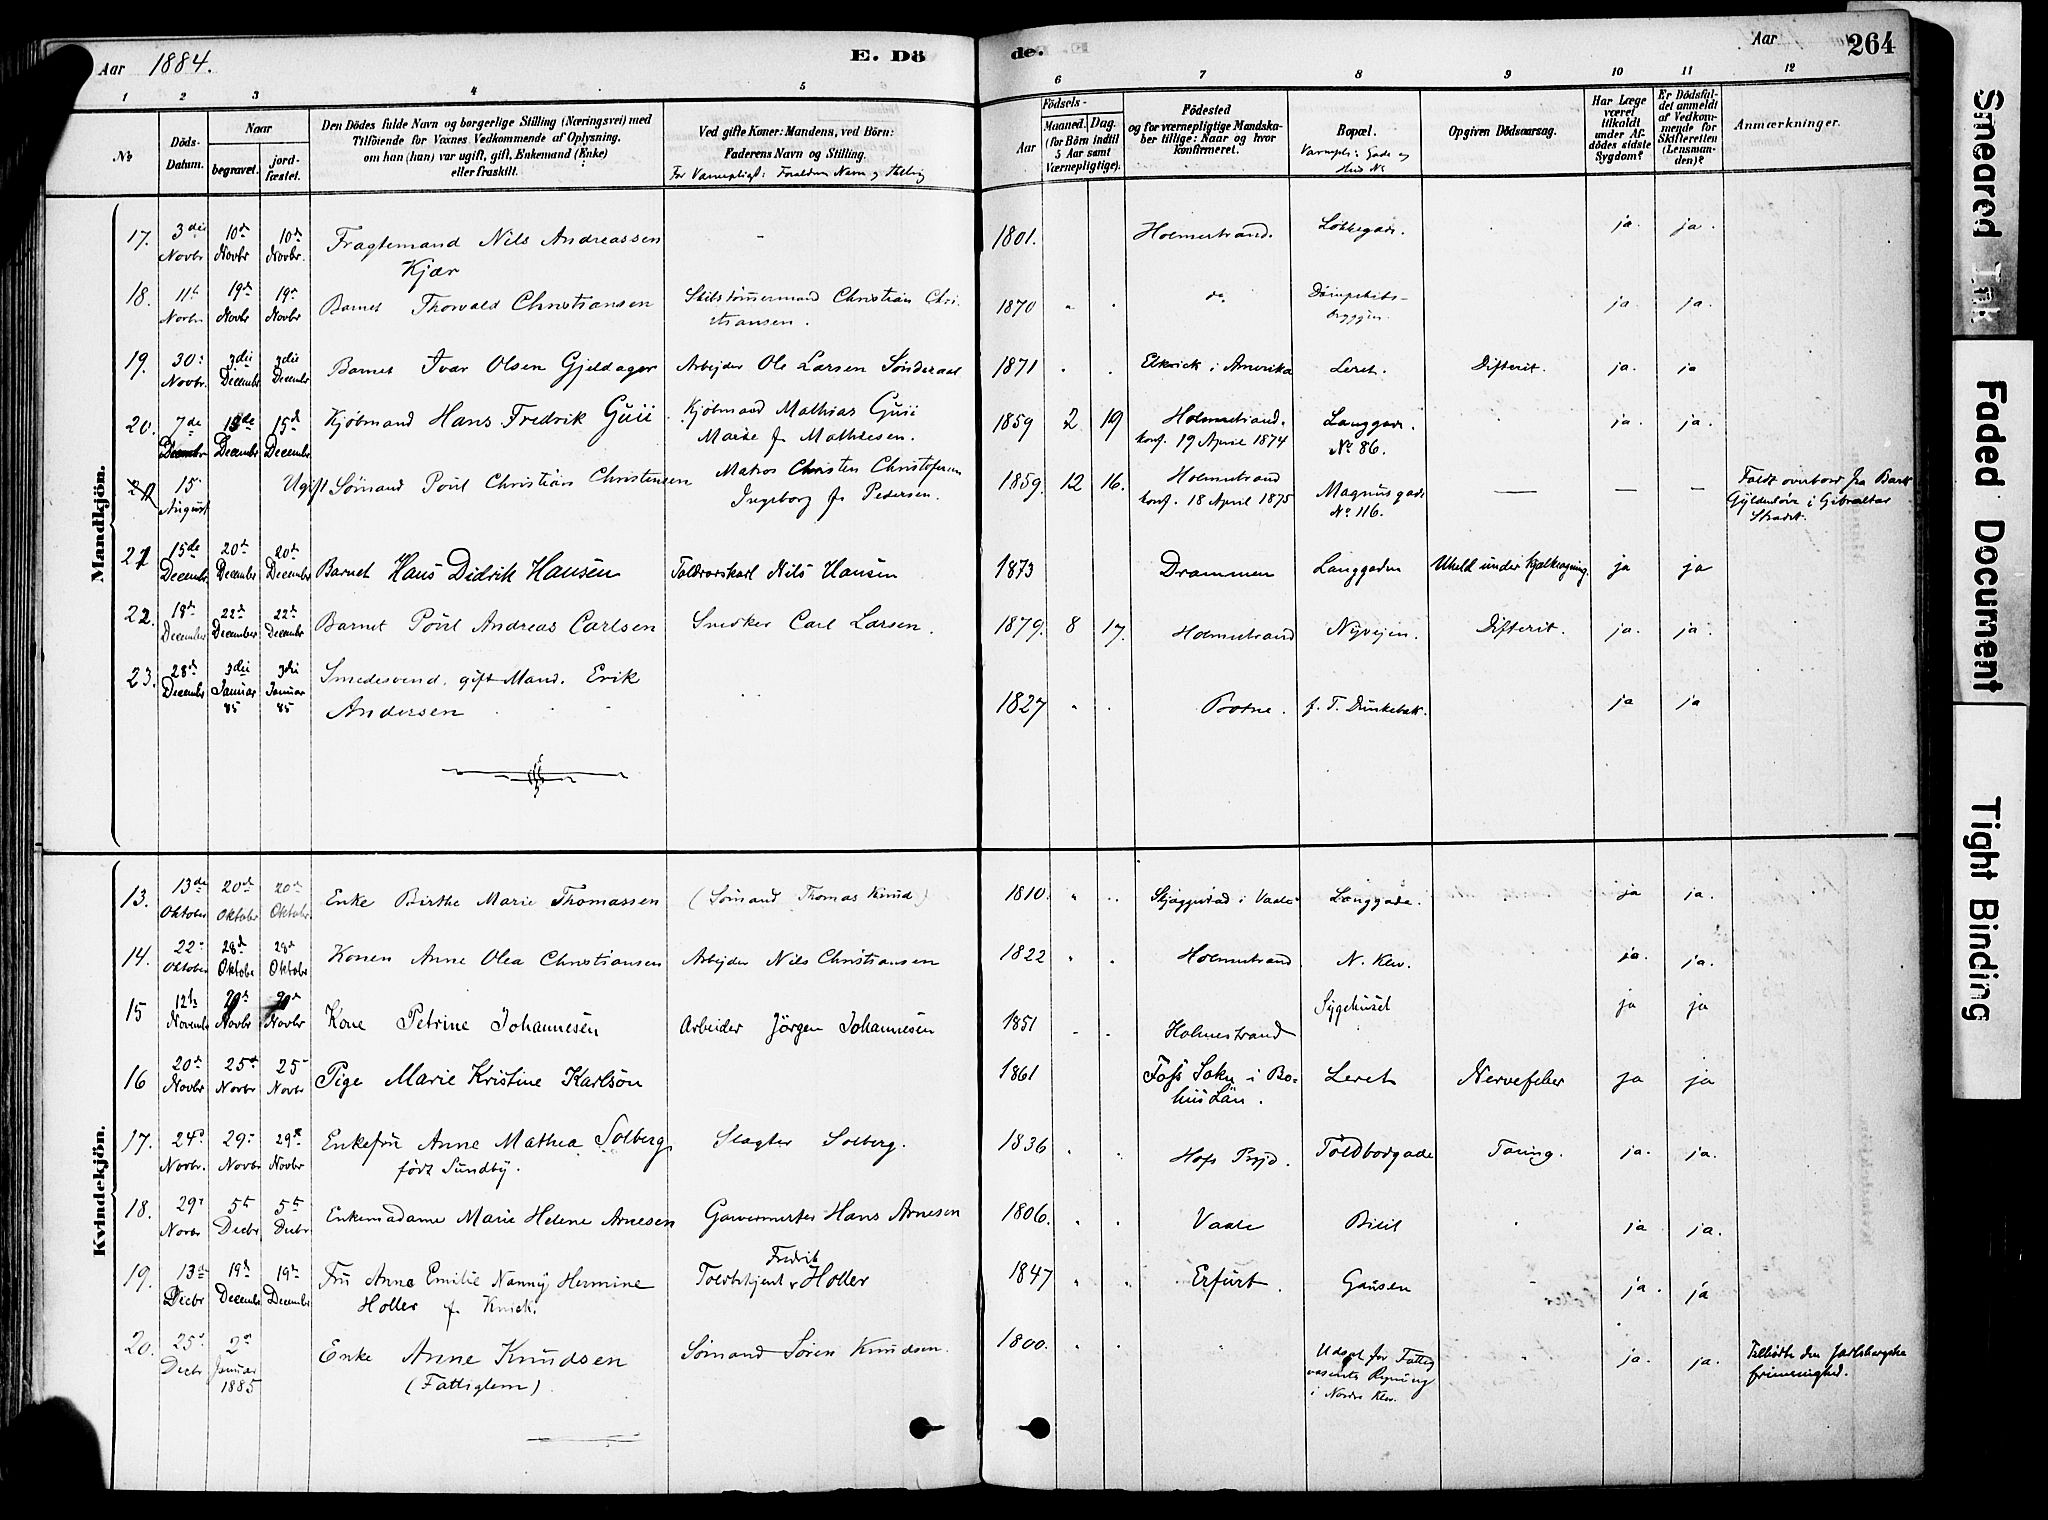 Aar 1884. E. Dö de. Aar 264
1 2 3 4 5 6 7 8 9 10 11 12
No
Döds-Datum.
Naar begravet. jordfæstet.
Den Dödes fulde Navn og borgerlige Stilling (Næringsvei) med Tilföiende for Voxnes Vedkommende af Oplysning, om han (hun) var ugift, gift, Enkemand (Enke) eller fraskilt.
Ved gifte Koner: Mandens, ved Börn: Faderens Navn og Stilling.
For Værnepligt: Forældres Navn og Stilling
Födsels-
Aar Maaned. Dag. (for Börn indtil 5 Aar samt Værnepligtige).
Födested og for værnepligtige Mandskaber tillige: Naar og hvor konfirmeret.
Bopæl.
Værnepl: Gade og Hus No
Opgiven Dödsaarsag.
Har Læge været tilkaldt under Afdödes sidste Sygdom?
Er Dödsfaldet anmeldt af Vedkommende for Skifteretten (Lensmanden)?
Anmærkninger.
Mandkjön.
17. 3die Novbr 10de Novbr 10de Novbr. Fragtemand Nils Andreassen Kjær - 1801. Holmestrand. Løkkegade. ja. ja.
18. 11te Novbr 19de Novbr 19de Novbr Barnet Thorvald Christiansen Skibstømmermand Christian Christiansen. 1870 do Dampskibsbryggen. ja. ja.
19. 30. Novbr. 3die December 3die December Barnet Ivar Olsen Gjeldager Arbejder Ole Larsen Sønderaal 1871 i Amerika Leret. Difterit. ja. ja
20. 7de December 15de December 15de December Kjøbmand Hans Fredrik Guii Kjøbmand Mathias Guii Marie f. Mathiesen. 1859 2 19 Holmestrand. konf. 19 April 1874 Langgade. No 86. ja. ja.
21 15 August Ugift Sømand Poul Christian Christensen Matros Christen Christofersen Ingeborg f. Pedersen. 1859. 12 16. Holmestrand konf. 18 April 1875 Magnusgade No 116. — — — Faldt overbord fra Bark Gyldenløve i Gibraltar Strædet.
21 15de December 20de December 20de December Barnet Hans Didrik Hansen Toldrorskarl Nils Hansen 1873 Drammen Langgaden Uheld under Kjælkeagning. ja ja
22. 18de December 22de December 22de December Barnet Poul Andreas Carlsen Snedker Carl Larsen. 1879. 8 17. Holmestrand Nyvejen. Difterit. ja. ja.
23. 28de December 3die Januar 85 3die Januar 85 Smedesvend, gift Mand. Erik Andersen 1827 Botne. f. T. ja ja
Kvindekjön.
13. 13de Oktober 20de Oktober 20de Oktober. Enke Birthe Marie Thomassen (Sømand Thomas Knud) 1810. i Vaale Langgade. ja ja.
14. 22. Oktober 28de Oktober 28de Oktober Konen Anne Olea Christiansen Arbejder Nils Christiansen 1822 Holmestrand N. Klev. ja. ja.
15 12te November 20de Novbr 20de Novbr Kone Petrine Johannesen Arbeider Jörgen Johannesen 1851 Holmestrand Sygehuset ja ja
16 20de Novbr 25de Novbr 25 Novbr Pige Marie Kristine Karlson 1861 Foss Sokn i Bohus Län. Leret Nervefeber ja ja
17. 24de Novbr. 29. Novbr 29de Novbr Enkefru Anne Mathea Solberg født Sundby. Slagter Solberg. 1836 Hofs Prgjd. Toldbodgade Tæring. ja. ja.
18. 29. Novbr 5te Decbr 5te Decbr Enkemadame Marie Helene Arnesen Garvermester Hans Arnesen 1806. Vaale Bilit ja ja.
19. 13de Decbr 19de December 19de December Fru Anne Emilie Nanny Hermine Holler f. Knick. Toldbetjent Fredrik Holler 1847 Erfurt. Gausen ja. ja
20. 25. Decbr 2. Januar 1885 Enke Anne Knudsen (Fattiglem). Sømand Søren Knudsen. 1800. Udsat for Fattigvæsents Regning i Nordre Klev. ja. ja. Tilhørte den Jarlsbergske frimenighed.
Smeared Ink
Faded Document
Tight Binding